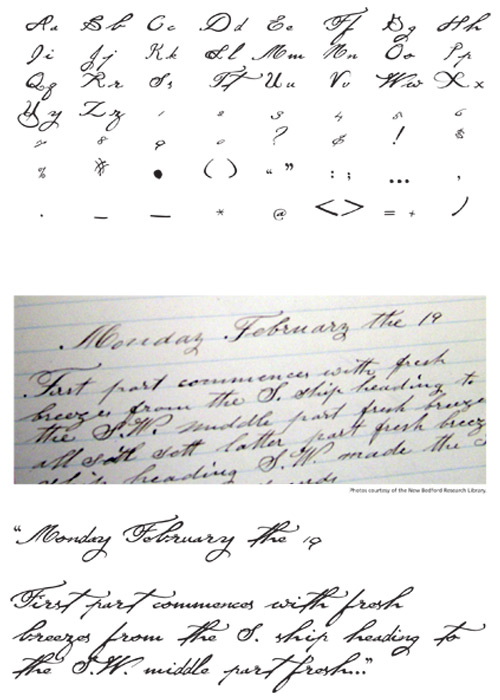 Aa Bb Cc Dd Ee Ff Gg Hh
Ii Jj Kk Ll Mm Nn Oo Pp
Qq Rr Ss Tt Uu Vv Ww Xx
Yy Zz 1 2 3 4 5 6
7 8 9 0 ? & ! $
% * • ( ) “ ” : ; ... ,
. _ — * @ < > = + /
Monday February the 19
First part commences with fresh
breezes from the S. ship heading to
the S.W. middle part fresh breeze
all sail sett latter part fresh breez
ship heading S.W. made the
Photos courtesy of the New Bedford Research Library.
“Monday February the 19
First part commences with fresh
breezes from the S. ship heading to
the S.W. middle part fresh...”